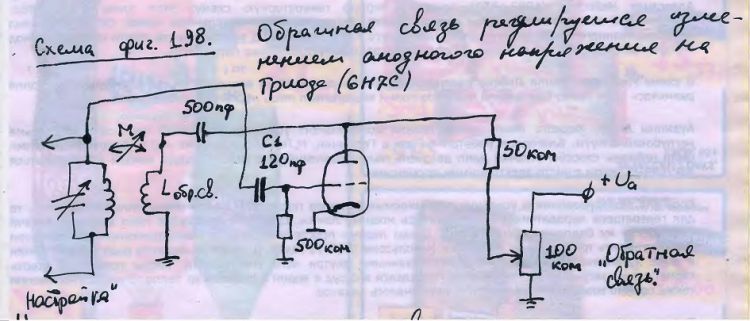 Схема фиг. 198.
Обратная связь регулируется изме-
нением анодного напряжения на
Триоде (6Н7С)
500пф
М
C1
120пф
Lобр.св.
500ком
50ком
+ Ua
100
ком
„Обратная
связь".
Настройка"